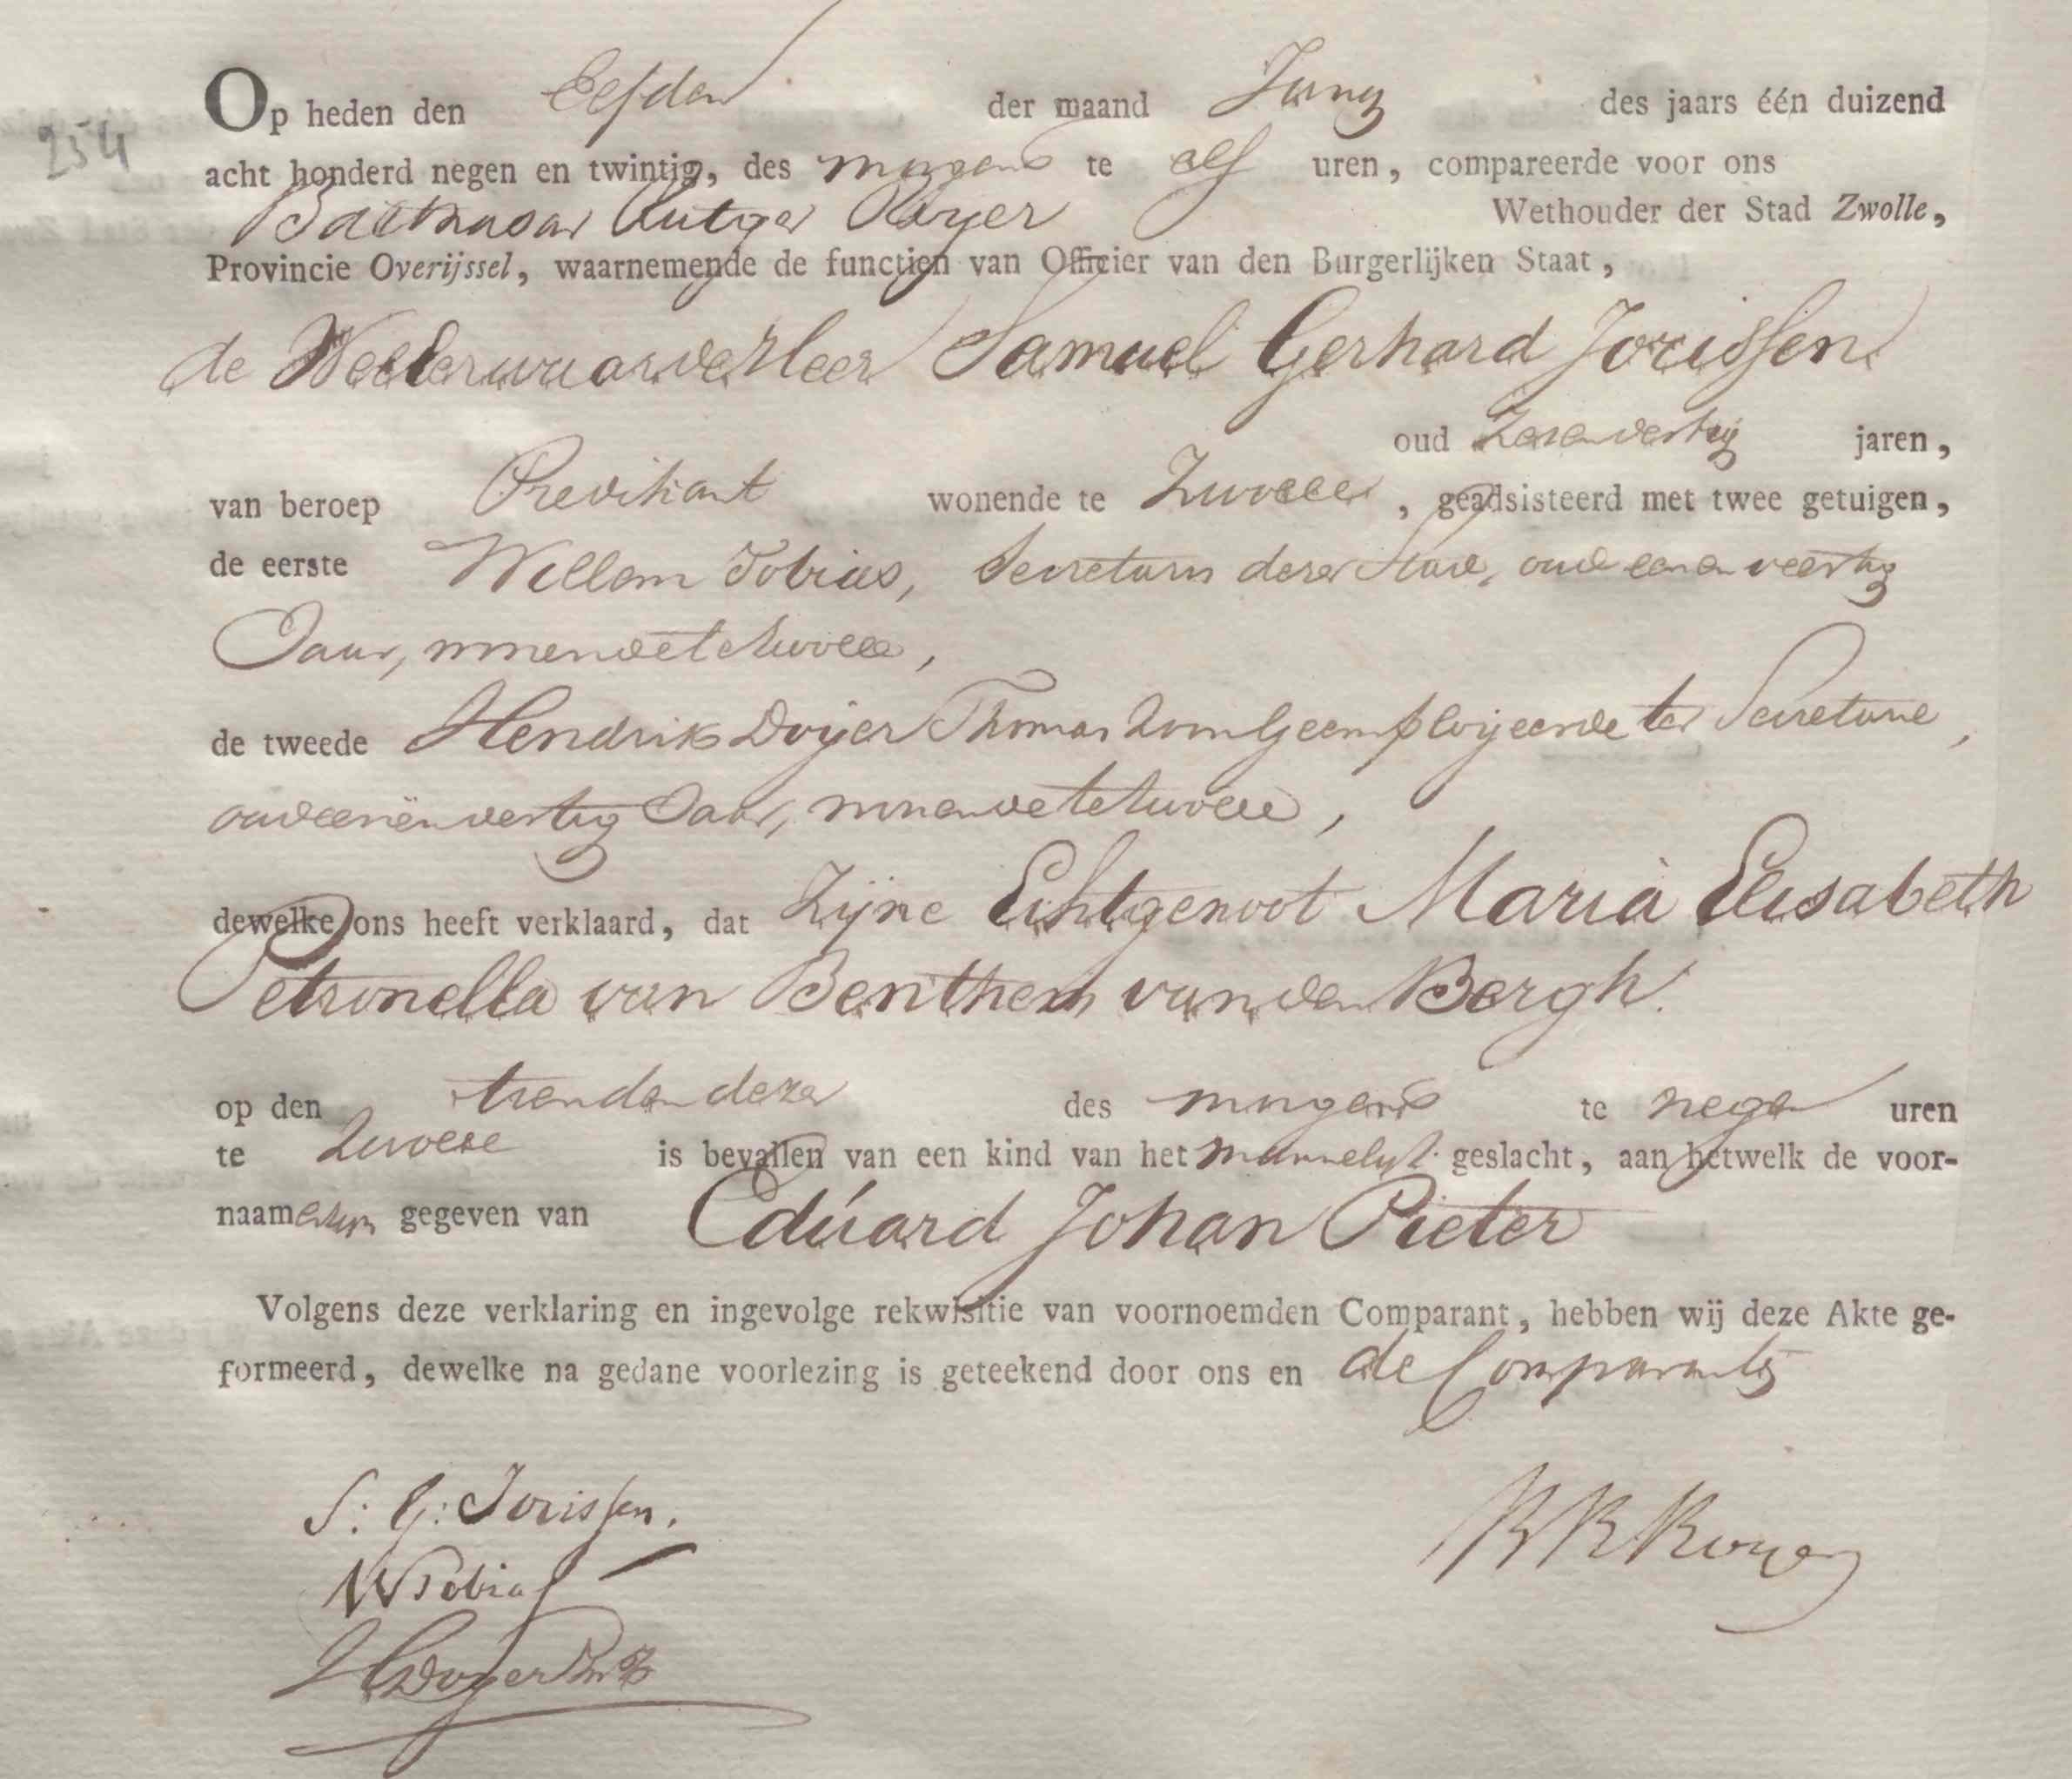 254
Op heden den Elfden der maand Juny des jaars één duizend
acht honderd negen en twintig, des morgens te elf uren, compareerde voor ons
Balthasar Rutger Royer Wethouder der Stad Zwolle,
Provincie Overijssel, waarnemende de functien van Officier van den Burgerlijken Staat,
de Weleerwaarde Heer Samuel Gerhard Jorissen
oud jaren,
van beroep Predikant wonende te Zwolle, geadsisteerd met twee getuigen,
de eerste Willem Tobias, Secretaris dezer Stad, oud een en veertig
Jaar, wonende te Zwolle,
de tweede Hendrik Doijer Thomas Zoon Geemploijeerde ter Secretarie,
oud eenën veertig Jaar, wonende te Zwolle,
dewelke ons heeft verklaard, dat Zijne Echtgenoot Maria Elisabeth
Petronella van Benthem van den Bergh
op den tienden dezer des morgens te negen uren
te Zwolle is bevallen van een kind van het mannelijk geslacht, aan hetwelk de voor-
naamen zijn gegeven van Eduard Johan Pieter
Volgens deze verklaring en ingevolge rekwisitie van voornoemden Comparant, hebben wij deze Akte ge-
formeerd, dewelke na gedane voorlezing is geteekend door ons en de Comparants
S: G: Jorissen.
W Tobias
B R Royer
H Doyer Thz